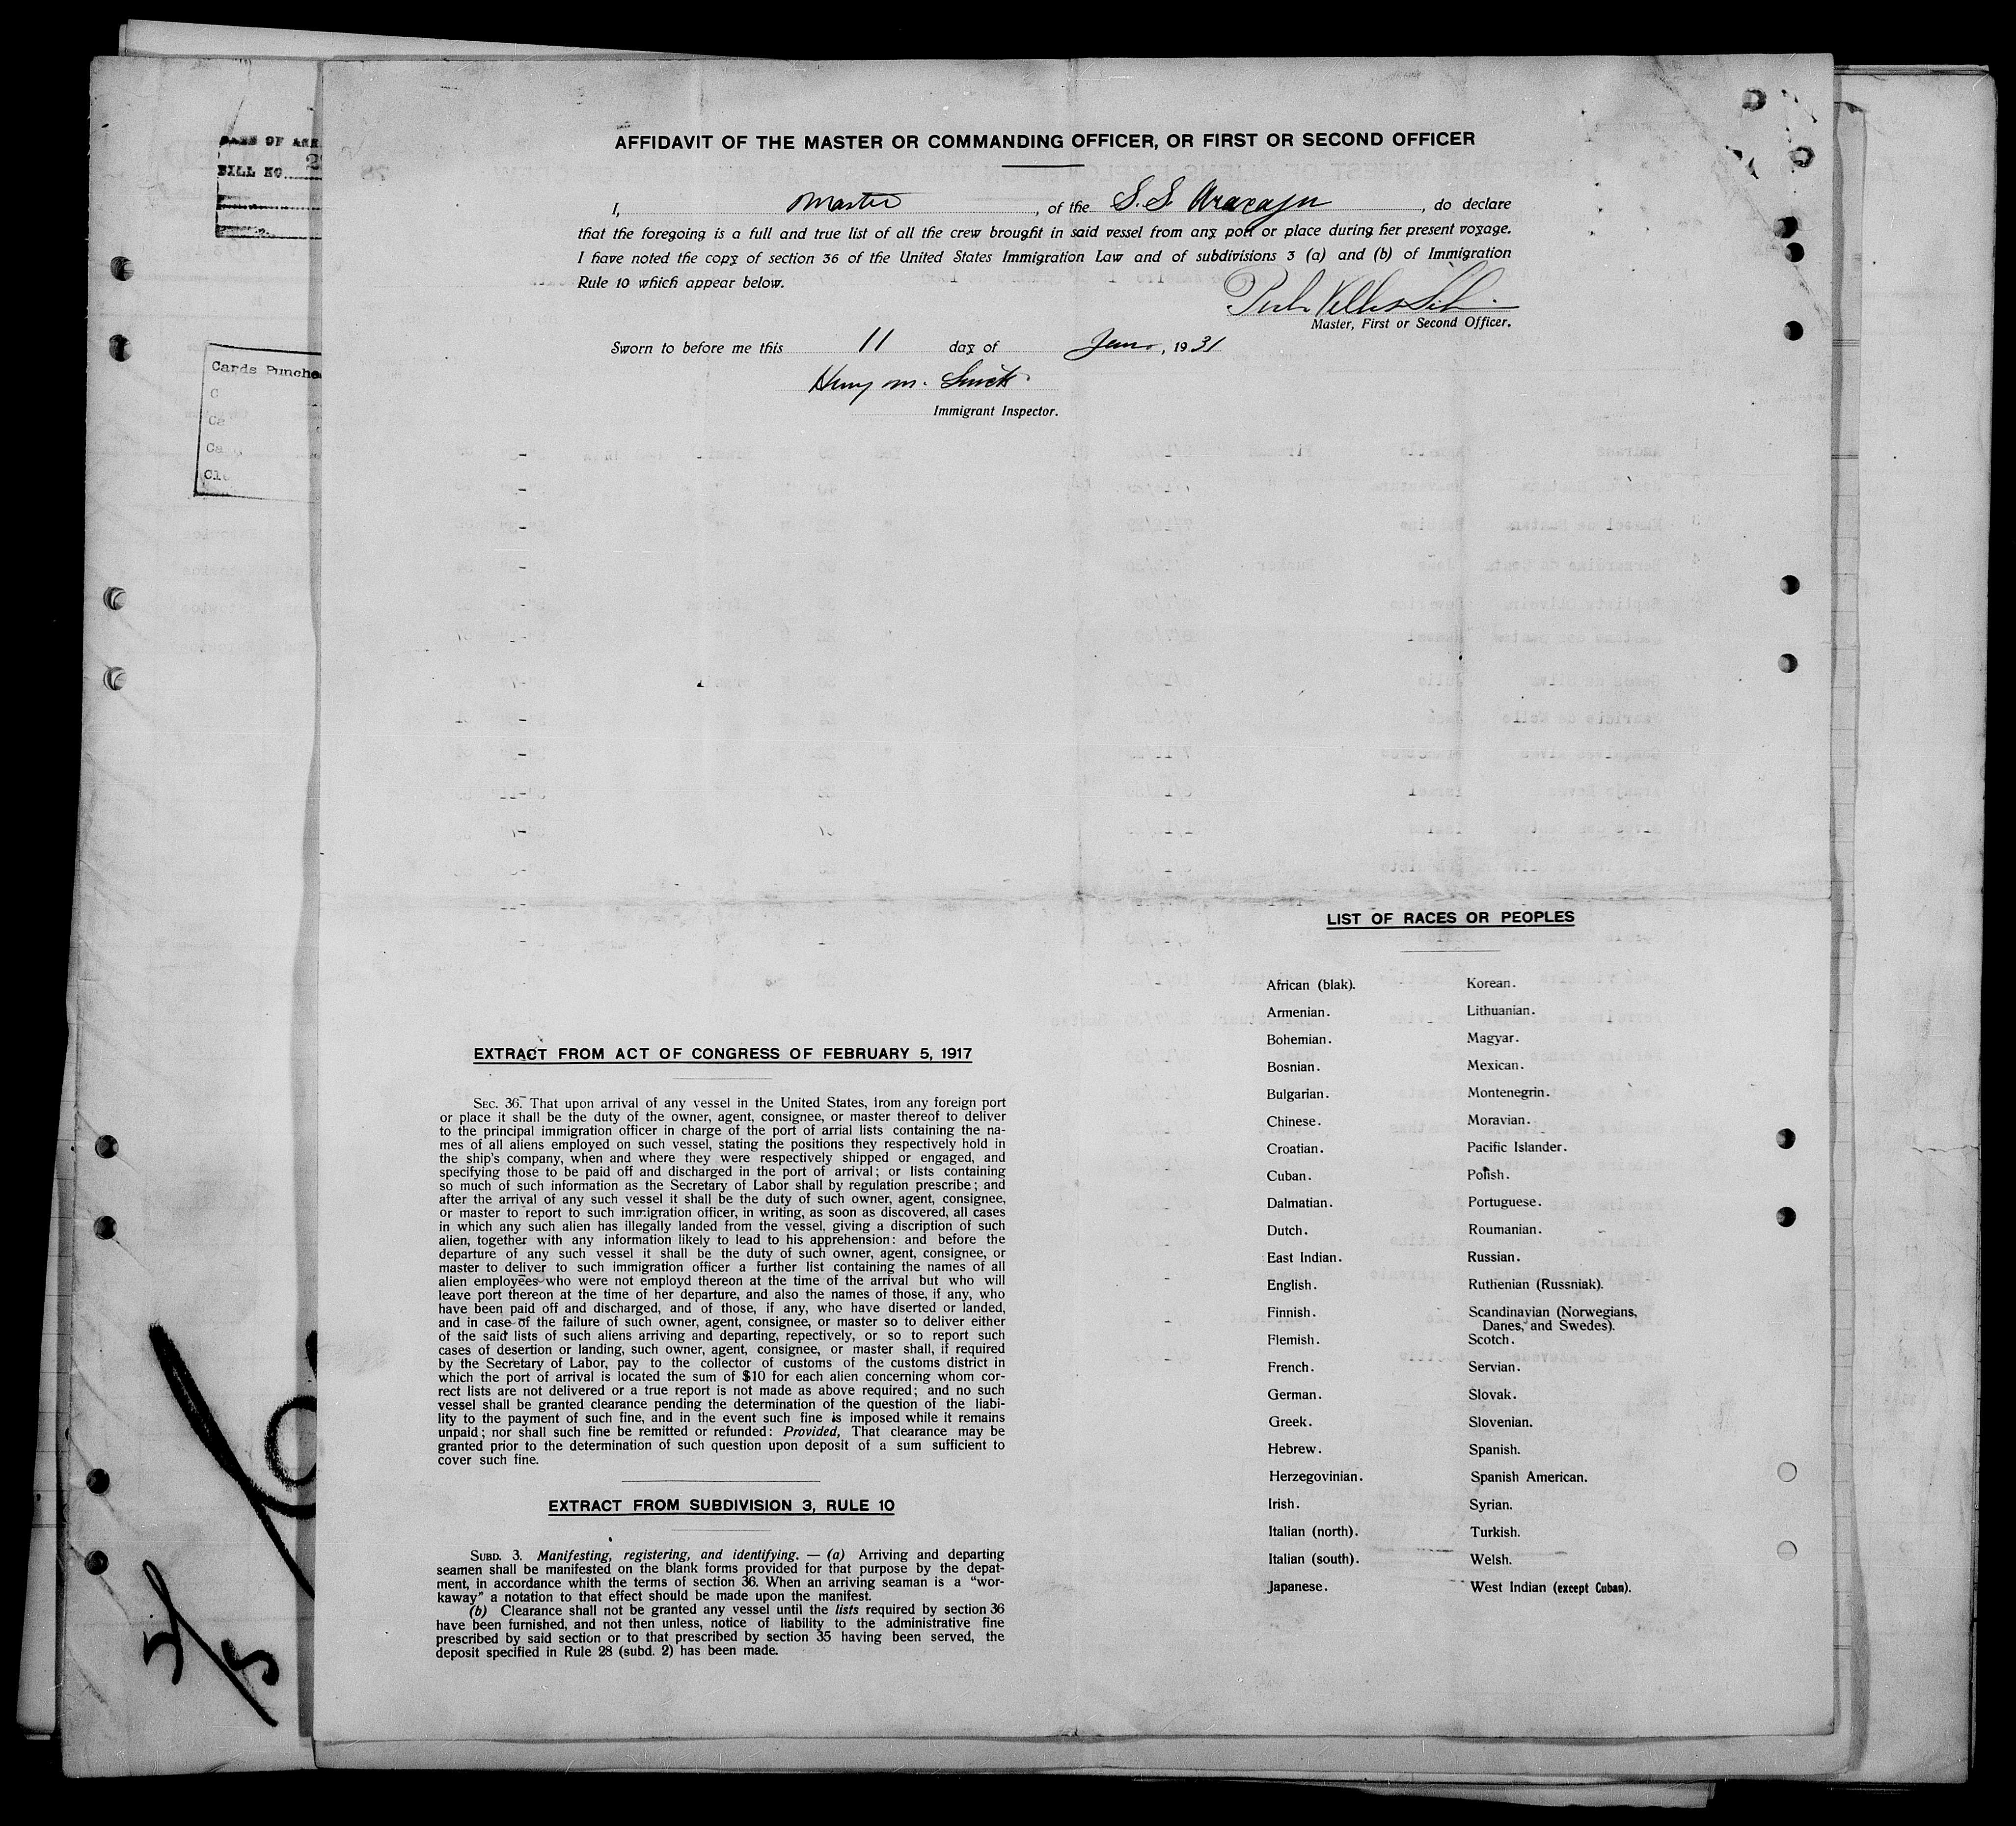 AFFIDAVIT OF THE MASTER OR COMMANDING OFFICER, OR FIRST OR SECOND OFFICER
I, Master, of the S.S. Aracaju, do declare
that the foregoing is a full and true list of all the crew brought in said vessel from any port or place during her present voyage.
I have noted the copy of section 36 of the United States Immigration Law and of subdivisions 3 (a) and (b) of Immigration
Rule 10 which appear below.
Master, First or Second Officer.
Sworn to before me this 11 day of Jan., 1931
Henry M. Smith
Immigrant Inspector.
BILL NO.
Cards Punche
EXTRACT FROM ACT OF CONGRESS OF FEBRUARY 5, 1917
SEC. 36. That upon arrival of any vessel in the United States, from any foreign port
or place it shall be the duty of the owner, agent, consignee, or master thereof to deliver
to the principal immigration officer in charge of the port of arrial lists containing the na-
mes of all aliens employed on such vessel, stating the positions they respectively hold in
the ship's company, when and where they were respectively shipped or engaged, and
specifying those to be paid off and discharged in the port of arrival; or lists containing
so much of such information as the Secretary of Labor shall by regulation prescribe; and
after the arrival of any such vessel it shall be the duty of such owner, agent, consignee,
or master to report to such immigration officer, in writing, as soon as discovered, all cases
in which any such alien has illegally landed from the vessel, giving a discription of such
alien, together with any information likely to lead to his apprehension: and before the
departure of any such vessel it shall be the duty of such owner, agent, consignee, or
master to deliver to such immigration officer a further list containing the names of all
alien employees who were not employd thereon at the time of the arrival but who will
leave port thereon at the time of her departure, and also the names of those, if any, who
have been paid off and discharged, and of those, if any, who have diserted or landed,
and in case of the failure of such owner, agent, consignee, or master so to deliver either
of the said lists of such aliens arriving and departing, repectively, or so to report such
cases of desertion or landing, such owner, agent, consignee, or master shall, if required
by the Secretary of Labor, pay to the collector of customs of the customs district in
which the port of arrival is located the sum of $10 for each alien concerning whom cor-
rect lists are not delivered or a true report is not made as above required; and no such
vessel shall be granted clearance pending the determination of the question of the liabi-
lity to the payment of such fine, and in the event such fine is imposed while it remains
unpaid; nor shall such fine be remitted or refunded: Provided, That clearance may be
granted prior to the determination of such question upon deposit of a sum sufficient to
cover such fine.
EXTRACT FROM SUBDIVISION 3, RULE 10
SUBD. 3. Manifesting, registering, and identifying. — (a) Arriving and departing
seamen shall be manifested on the blank forms provided for that purpose by the depat-
ment, in accordance whith the terms of section 36. When an arriving seaman is a "wor-
kaway" a notation to that effect should be made upon the manifest.
(b) Clearance shall not be granted any vessel until the lists required by section 36
have been furnished, and not then unless, notice of liability to the administrative fine
prescribed by said section or to that prescribed by section 35 having been served, the
deposit specified in Rule 28 (subd. 2) has been made.
LIST OF RACES OR PEOPLES
African (blak).
Armenian.
Bohemian.
Bosnian.
Bulgarian.
Chinese.
Croatian.
Cuban.
Dalmatian.
Dutch.
East Indian.
English.
Finnish.
Flemish.
French.
German.
Greek.
Hebrew.
Herzegovinian.
Irish.
Italian (north).
Italian (south).
Japanese.
Korean.
Lithuanian.
Magyar.
Mexican.
Montenegrin.
Moravian.
Pacific Islander.
Polish.
Portuguese.
Roumanian.
Russian.
Ruthenian (Russniak).
Scandinavian (Norwegians,
Danes, and Swedes).
Scotch.
Servian.
Slovak.
Slovenian.
Spanish.
Spanish American.
Syrian.
Turkish.
Welsh.
West Indian (except Cuban).